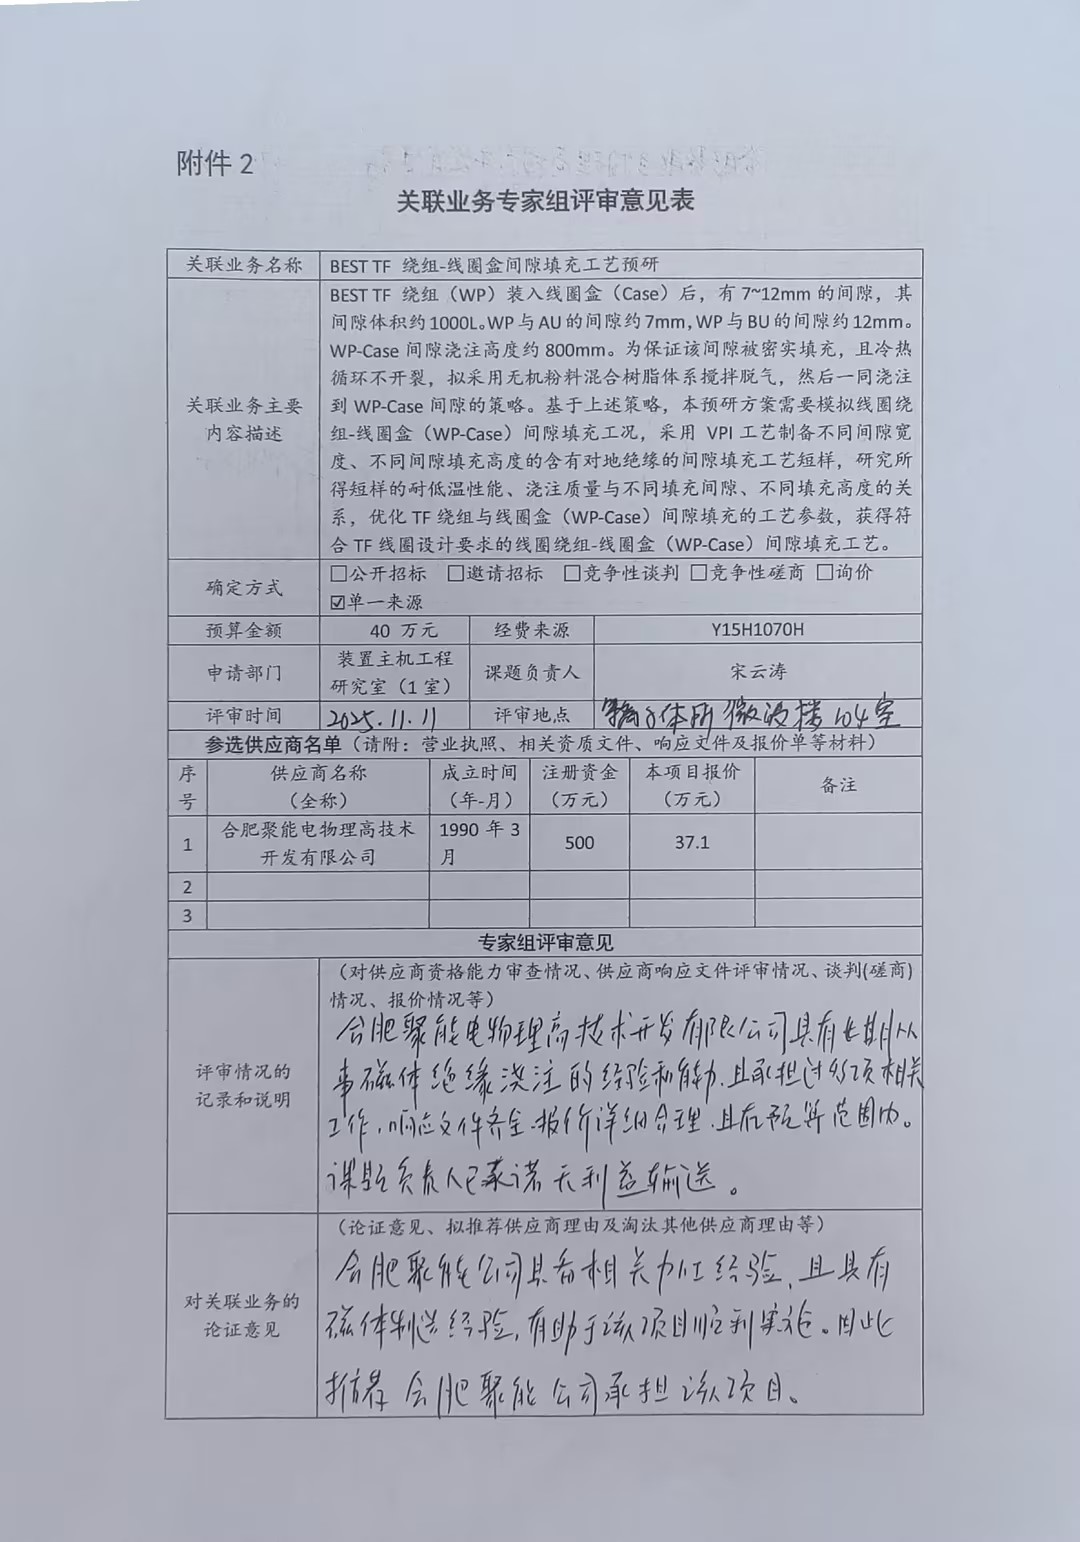 附件 2
关联业务专家组评审意见表
关联业务名称 BEST TF 绕组-线圈盒间隙填充工艺预研
关联业务主要内容描述
BEST TF 绕组（WP）装入线圈盒（Case）后，有 7~12mm 的间隙，其
间隙体积约 1000L。WP 与 AU 的间隙约 7mm，WP 与 BU 的间隙约 12mm。
WP-Case 间隙浇注高度约 800mm。为保证该间隙被密实填充，且冷热
循环不开裂，拟采用无机粉料混合树脂体系搅拌脱气，然后一同浇注
到 WP-Case 间隙的策略。基于上述策略，本预研方案需要模拟线圈绕
组-线圈盒（WP-Case）间隙填充工况，采用 VPI 工艺制备不同间隙宽
度、不同间隙填充高度的含有对地绝缘的间隙填充工艺短样，研究所
得短样的耐低温性能、浇注质量与不同填充间隙、不同填充高度的关
系，优化 TF 绕组与线圈盒（WP-Case）间隙填充的工艺参数，获得符
合 TF 线圈设计要求的线圈绕组-线圈盒（WP-Case）间隙填充工艺。
确定方式 □公开招标 □邀请招标 □竞争性谈判 □竞争性磋商 □询价
☑单一来源
预算金额 40 万元 经费来源 Y15H1070H
申请部门 装置主机工程研究室（1 室） 课题负责人 宋云涛
评审时间 2025.11.11 评审地点 等离子体所微波楼104室
参选供应商名单（请附：营业执照、相关资质文件、响应文件及报价单等材料）
序号 供应商名称（全称） 成立时间（年-月） 注册资金（万元） 本项目报价（万元） 备注
1 合肥聚能电物理高技术开发有限公司 1990 年 3 月 500 37.1
2
3
专家组评审意见
评审情况的记录和说明
（对供应商资格能力审查情况、供应商响应文件评审情况、谈判(磋商)
情况、报价情况等）
合肥聚能电物理高技术开发有限公司具有长期从
事磁体绝缘浇注的经验和能力，且承担过多项相关
工作，响应文件齐全，报价详细合理，且在预算范围内。
课题负责人已承诺无利益输送。
对关联业务的论证意见
（论证意见、拟推荐供应商理由及淘汰其他供应商理由等）
合肥聚能公司具备相关加工经验，且具有
磁体制造经验，有助于该项目顺利实施。因此
推荐合肥聚能公司承担该项目。